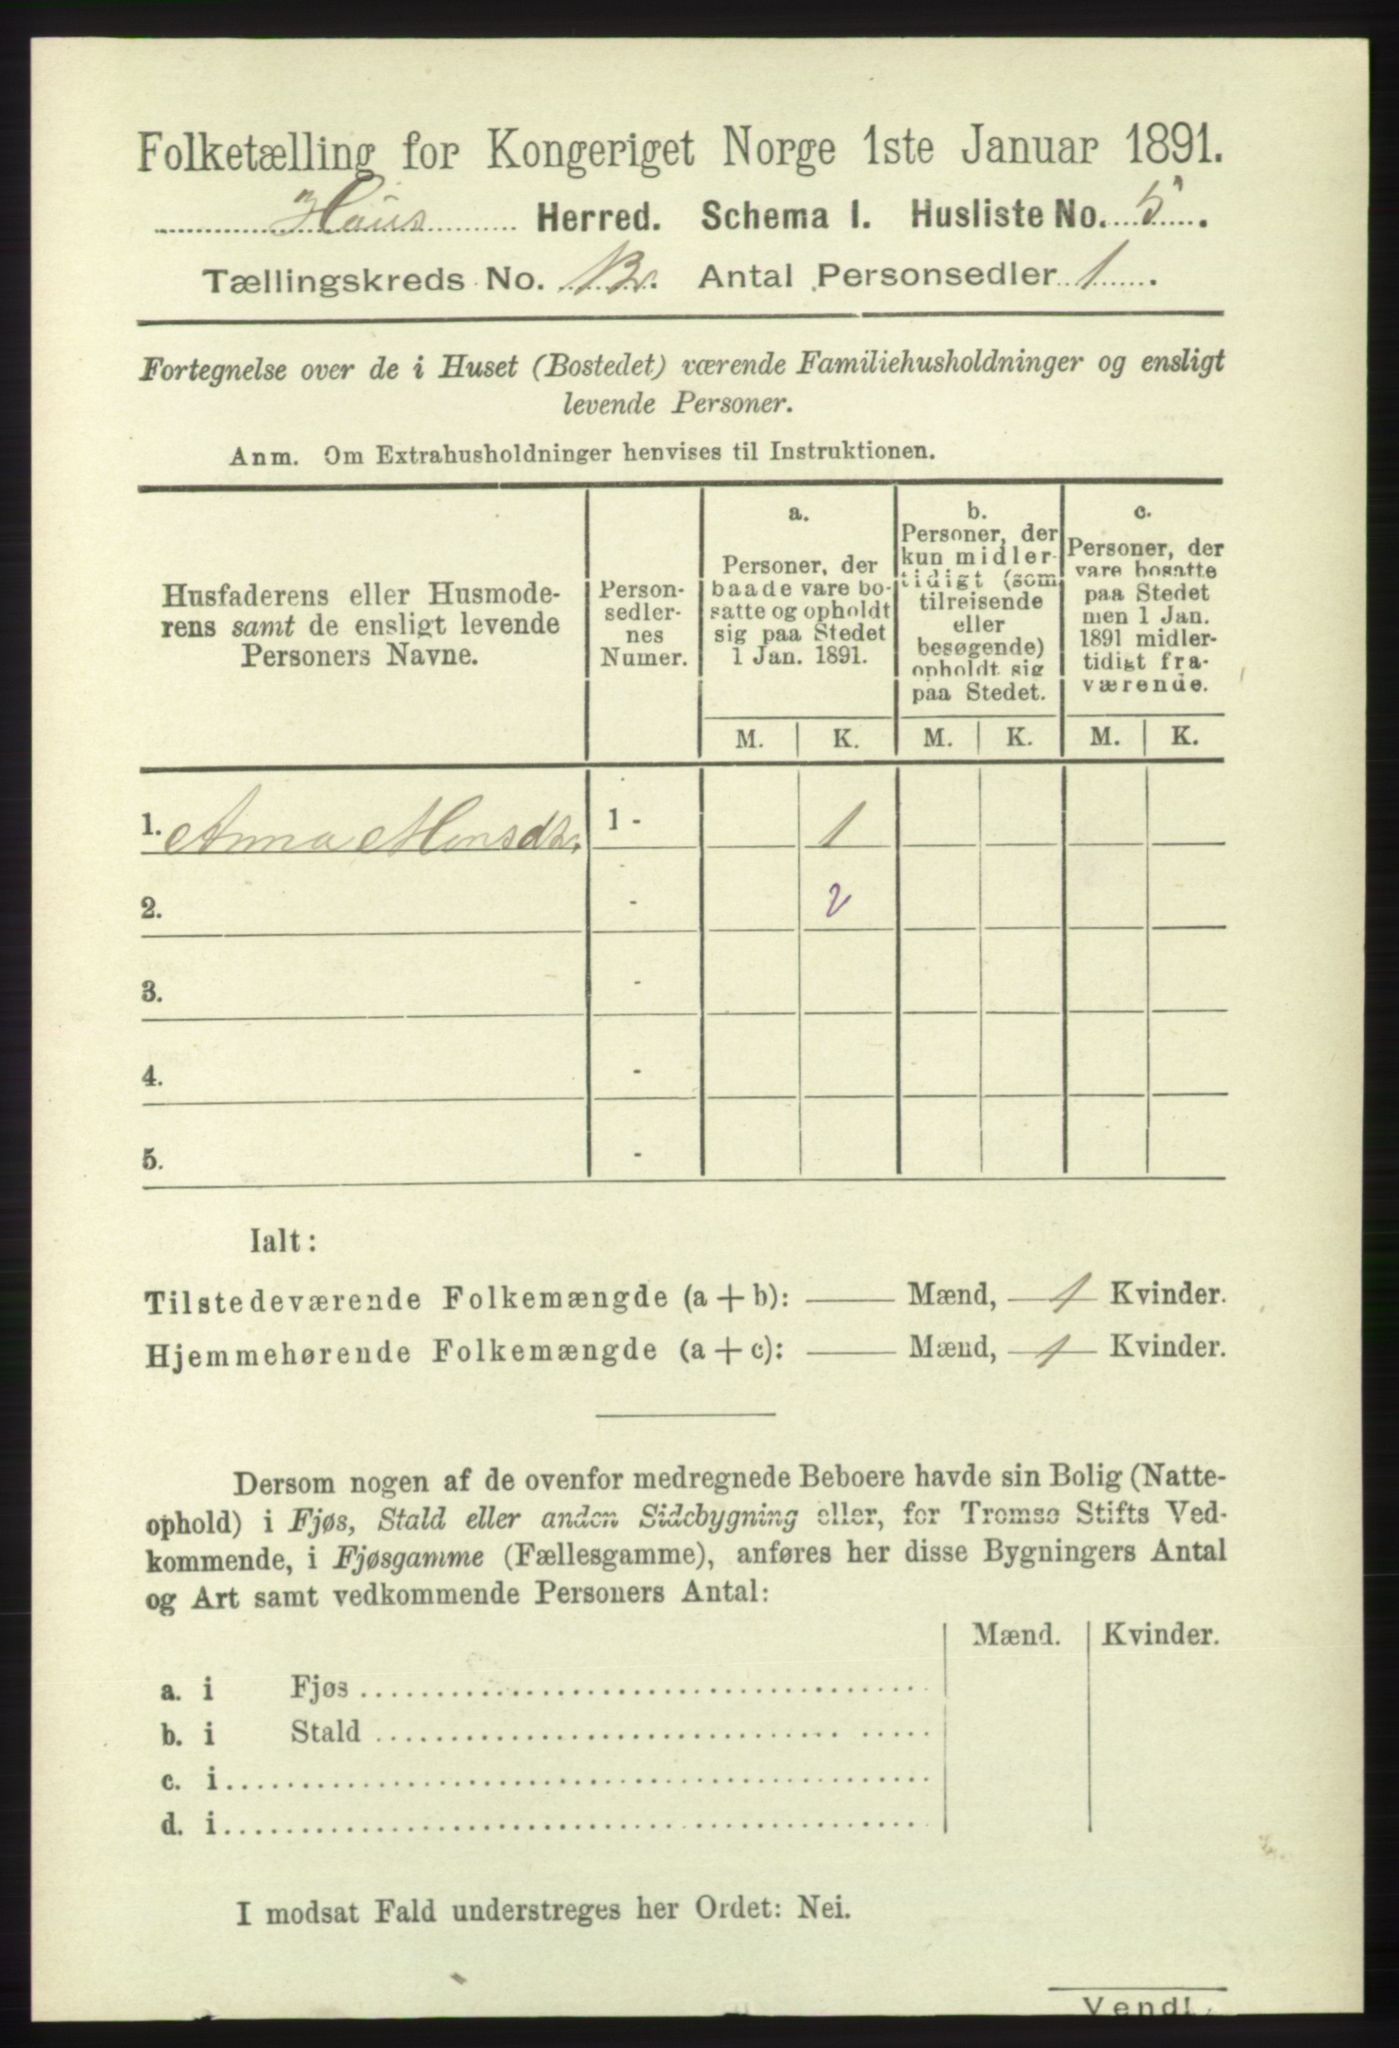 Folketælling for Kongeriget Norge 1ste Januar 1891.
Haus Herred. Schema I. Husliste No. 5.
Tællingskreds No. 13. Antal Personsedler 1.
Fortegnelse over de i Huset (Bostedet) værende Familiehusholdninger og ensligt
levende Personer.
Anm. Om Extrahusholdninger henvises til Instruktionen.
Husfaderens eller Husmode-
rens samt de ensligt levende
Personers Navne.
Person-
sedler-
nes
Numer.
a.
Personer, der
baade vare bo-
satte og opholdt
sig paa Stedet
1 Jan. 1891.
b.
Personer, der
kun midler-
tidigt (som
tilreisende
eller
besøgende)
opholdt sig
paa Stedet.
c.
Personer, der
vare bosatte
paa Stedet
men 1 Jan.
1891 midler-
tidigt fra-
værende.
M. K. M. K. M. K.
1. Anna Monsdtr. 1 - 1
2. - 2
3. -
4. -
5. -
Ialt:
Tilstedeværende Folkemængde (a+b): — Mænd, 1 Kvinder.
Hjemmehørende Folkemængde (a+c): — Mænd, 1 Kvinder.
Dersom nogen af de ovenfor medregnede Beboere havde sin Bolig (Natte-
ophold) i Fjøs, Stald eller anden Sidebygning eller, for Tromsø Stifts Ved-
kommende, i Fjøsgamme (Fællesgamme), anføres her disse Bygningers Antal
og Art samt vedkommende Personers Antal:
Mænd. Kvinder.
a. i Fjøs
b. i Stald
c. i
d. i
I modsat Fald understreges her Ordet: Nei.
Vend!